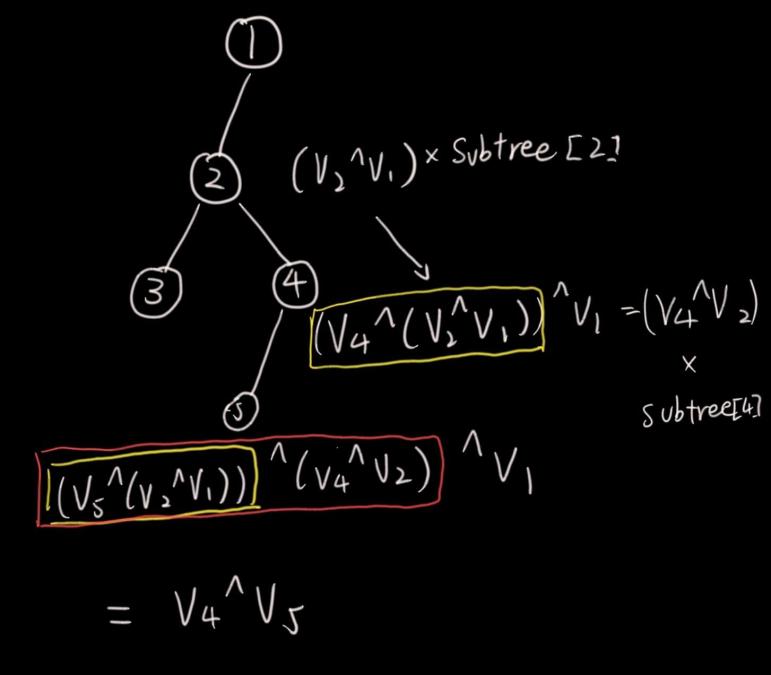 1
2
(V₂^V₁) × Subtree [2]
3
4
(V₄^(V₂^V₁))^V₁ = (V₄^V₂)
×
Subtree[4]
5
(V₅^(V₂^V₁))^(V₄^V₂)^V₁
= V₄^V₅